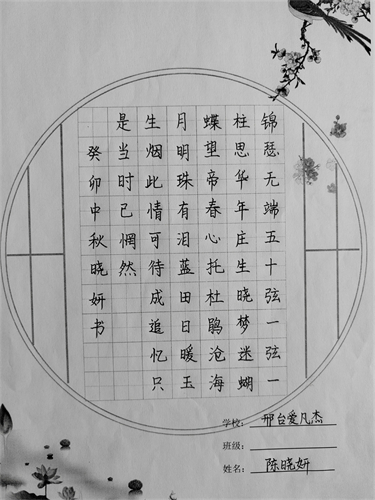 锦瑟无端五十弦一弦一
柱思华年庄生晓梦迷蝴
蝶望帝春心托杜鹃沧海
月明珠有泪蓝田日暖玉
生烟此情可待成追忆只
是当时已惘然
癸卯中秋晓妍书
学校：邢台爱凡杰
班级：
姓名：陈晓妍